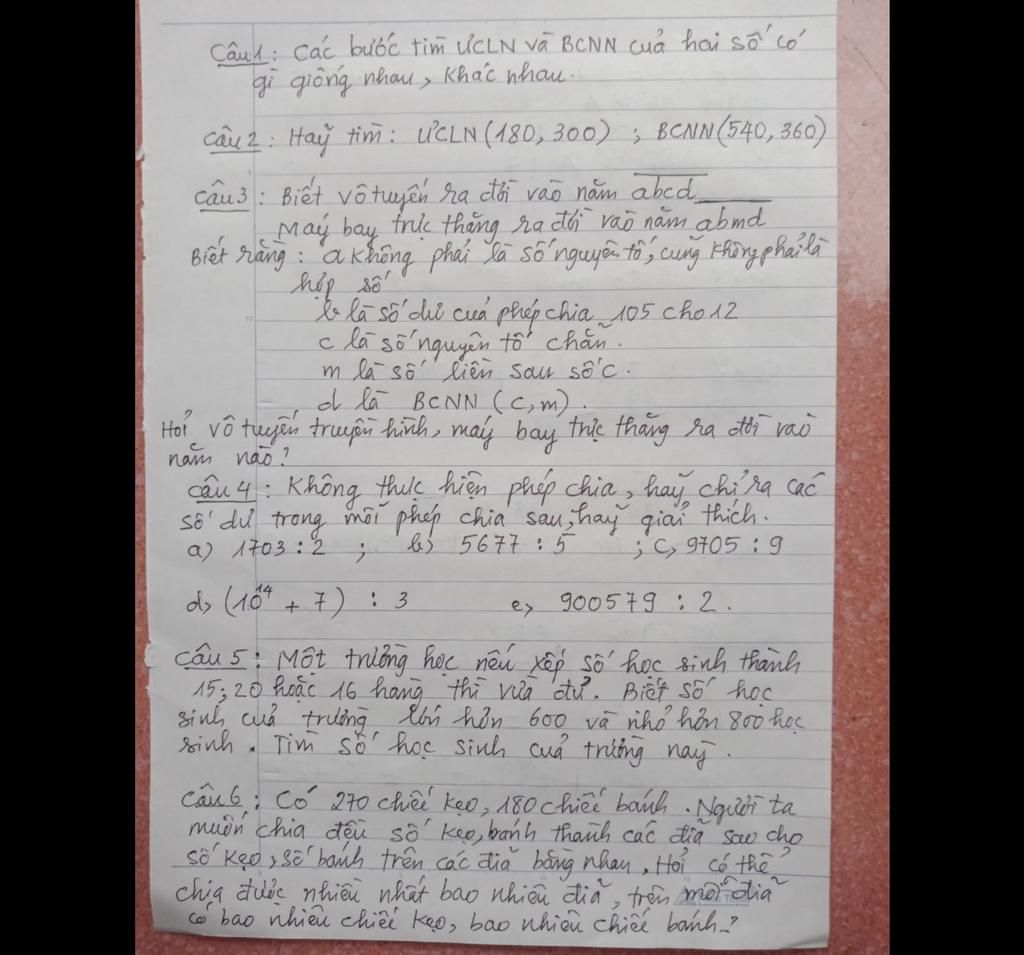 Câu 1: Các bước tìm ƯCLN và BCNN của hai số có
gì giống nhau, khác nhau.
Câu 2: Hãy tìm: ƯCLN(180, 300) ; BCNN(540, 360)
Câu 3: Biết vô tuyến ra đời vào năm abcd
Máy bay trực thăng ra đời vào năm abmd
Biết rằng: a không phải là số nguyên tố, cũng không phải là
hợp số
b là số dư của phép chia 105 cho 12
c là số nguyên tố chẵn.
m là số liền sau số c.
d là BCNN (c, m).
Hỏi vô tuyến truyền hình, máy bay trực thăng ra đời vào
năm nào?
Câu 4: Không thực hiện phép chia, hãy chỉ ra các
số dư trong mỗi phép chia sau, hãy giải thích.
a) 1703 : 2 ; b) 5677 : 5 ; c, 9705 : 9
d, (10¹⁴ + 7) : 3 e, 900579 : 2.
Câu 5: Một trường học nếu xếp số học sinh thành
15; 20 hoặc 16 hàng thì vừa đủ. Biết số học
sinh của trường lớn hơn 600 và nhỏ hơn 800 học
sinh. Tìm số học sinh của trường này.
Câu 6: Có 270 chiếc kẹo, 180 chiếc bánh. Người ta
muốn chia đều số kẹo, bánh thành các đĩa sao cho
số kẹo, số bánh trên các đĩa bằng nhau, Hỏi có thể
chia được nhiều nhất bao nhiêu đĩa, trên mỗi đĩa
có bao nhiêu chiếc kẹo, bao nhiêu chiếc bánh?